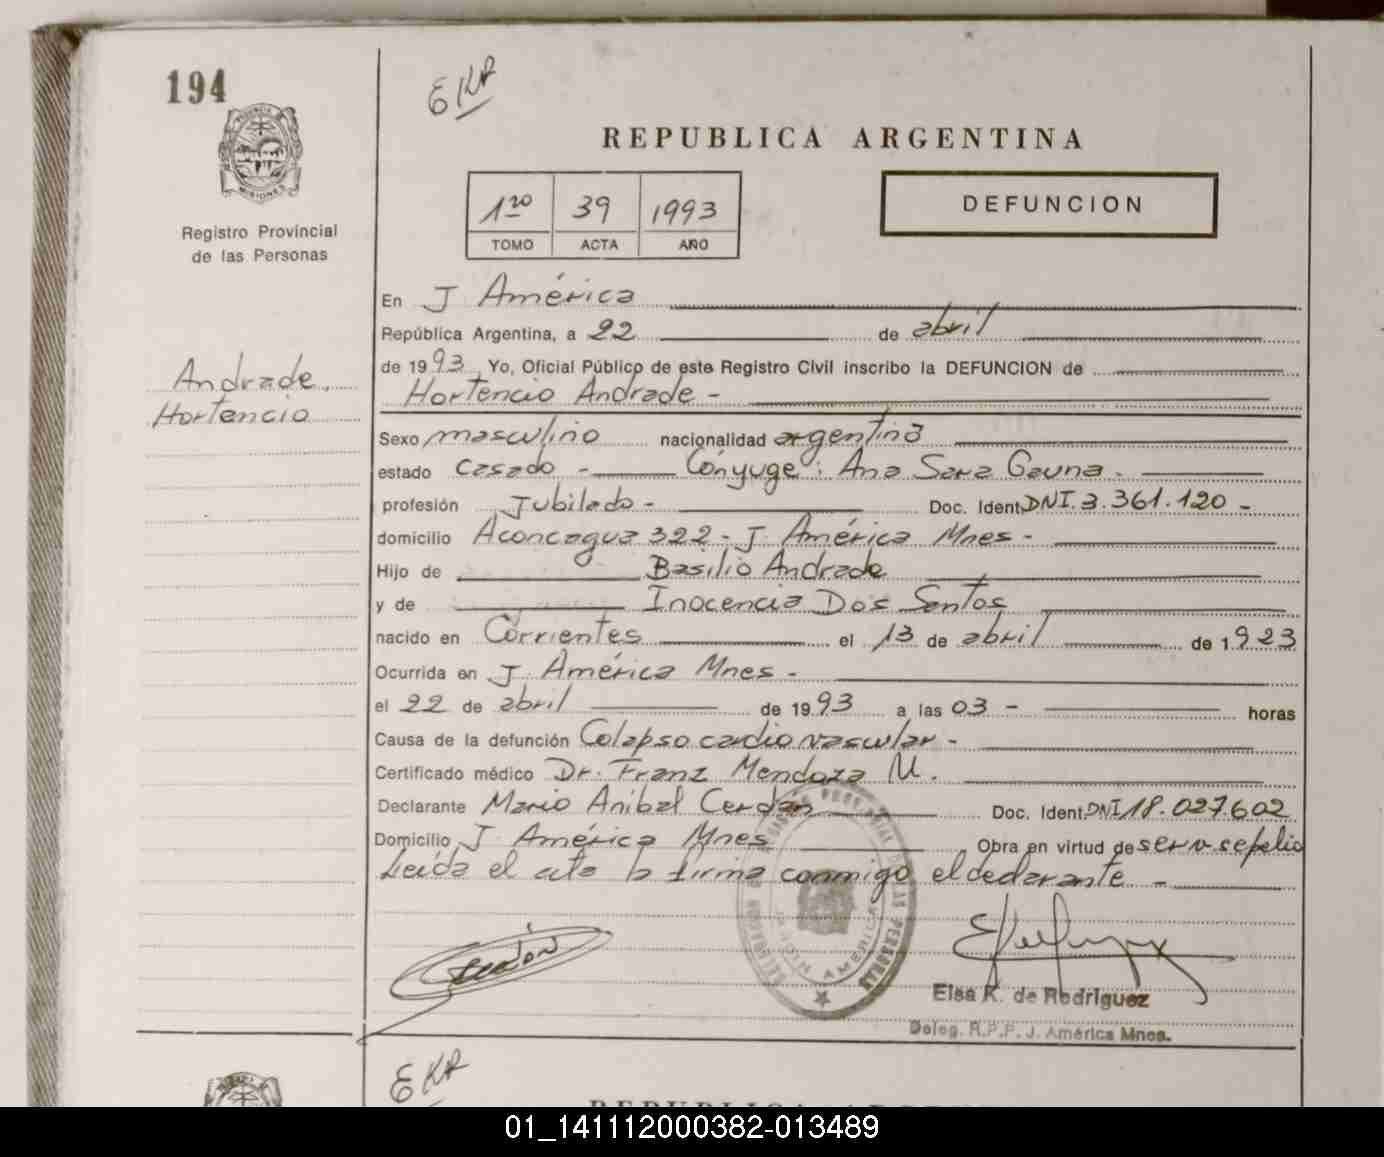 194
EKR
REPUBLICA ARGENTINA
PROVINCIA DE
MISIONES
Registro Provincial
de las Personas
1ro 39 1993
TOMO ACTA AÑO
DEFUNCION
Andrade,
Hortencio
En J América
República Argentina, a 22 de abril
de 1993 Yo, Oficial Público de este Registro Civil inscribo la DEFUNCION de
Hortencio Andrade -
Sexo masculino nacionalidad argentina
estado casado - Cónyuge: Ana Sara Gauna.
profesión Jubilado - Doc. Ident. DNI. 3.361.120 -
domicilio Aconcagua 322 - J. América Mnes -
Hijo de Basilio Andrade
y de Inocencia Dos Santos
nacido en Corrientes el 13 de abril de 1923
Ocurrida en J. América Mnes -
el 22 de abril de 1993 a las 03 - horas
Causa de la defunción Colapso cardio vascular -
Certificado médico Dr. Franz Mendoza M.
Declarante Mario Anibal Cerdán Doc. Ident. DNI 18.027.602
Domicilio J América Mnes Obra en virtud de serv. sepelio
Leída el acta la firma conmigo el declarante -
REGISTRO PROVINCIAL DE LAS PERSONAS
JARDIN AMERICA
Elsa K. de Rodríguez
Deleg. R.P.P. J. América Mnes.
EKR
REPUBLICA ARGENTINA
01_141112000382-013489